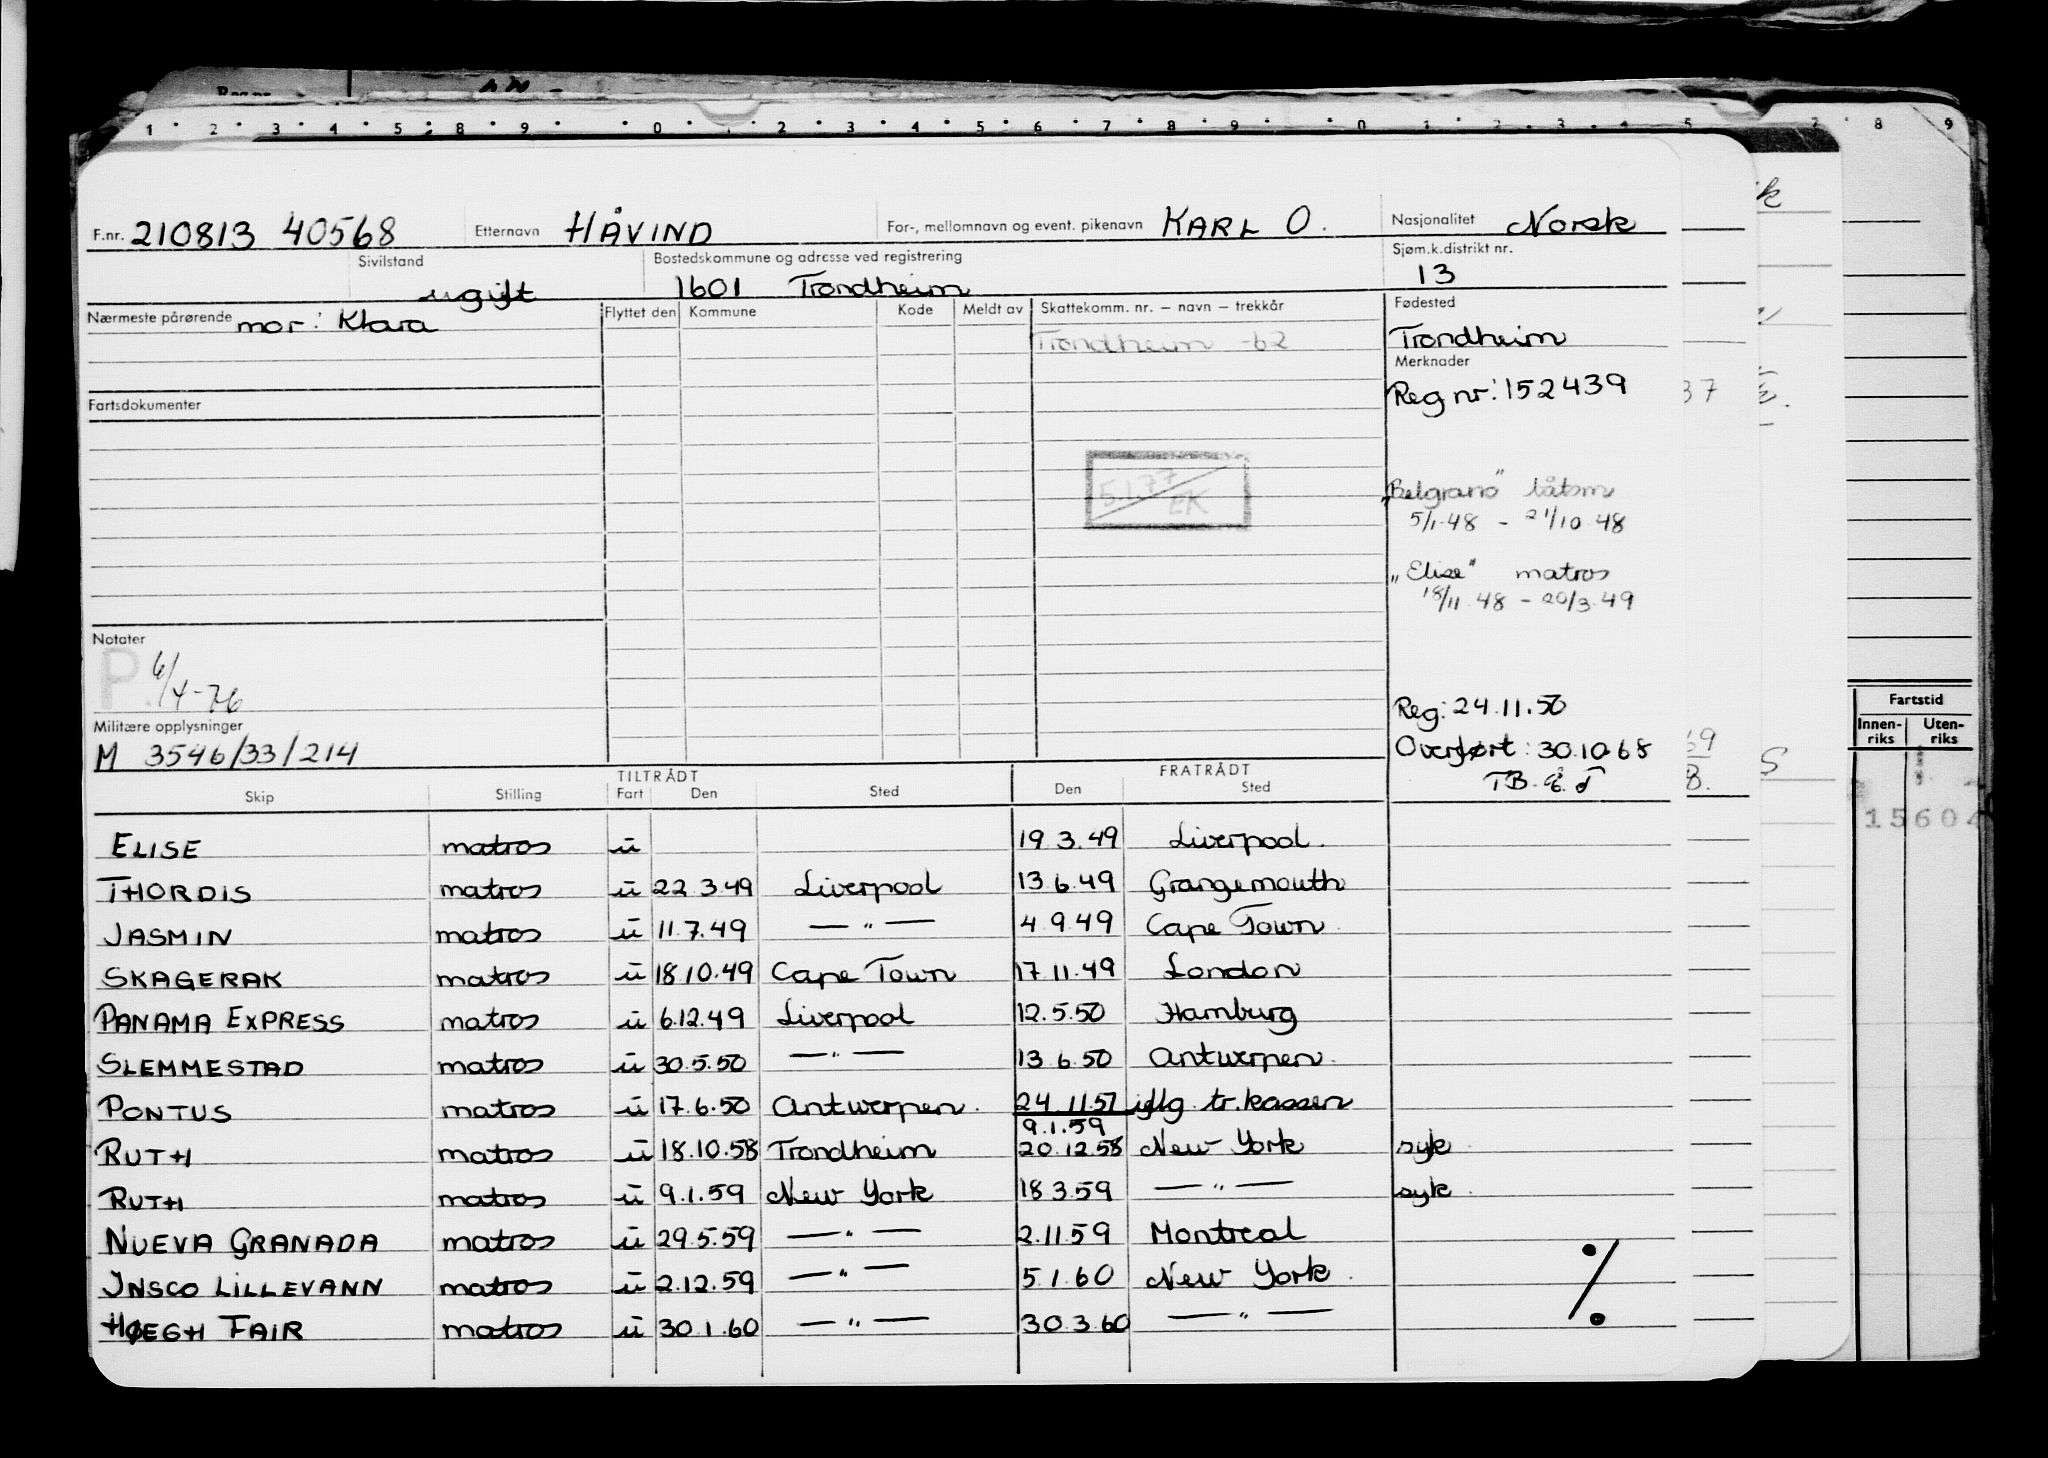 Reg.nr.
1 2 3 4 5 8 9 0 1 2 3 4 5 6 7 8 9 0 1 2 3 4 5 7 8 9
F.nr. 210813 40568 Etternavn HÅVIND For-, mellomnavn og event. pikenavn KARL O. Nasjonalitet Norsk
Sivilstand ugift Bostedskommune og adresse ved registrering 1601 Trondheim Sjøm.k.distrikt nr. 13
Nærmeste pårørende mor: Klara Flyttet den Kommune Kode Meldt av Skattekomm. nr. – navn – trekkår Fødested
Trondheim -62 Trondheim
Merknader
Reg nr: 152439
37
Fartsdokumenter
5.1.77 EK
„Belgrano" båtsm
5/1.48 - 21/10.48
„Elise" matros
18/11.48 - 20/3.49
Notater
P 6/4-76
Reg: 24.11.50
Militære opplysninger
M 3546/33/214
Overført: 30.10.68
Fartstid
Innen-riks Uten-riks
TILTRÅDT FRATRÅDT
Skip Stilling Fart Den Sted Den Sted
15604
ELISE matros u 19.3.49 Liverpool.
THORDIS matros u 22.3.49 Liverpool 13.6.49 Grangemouth
JASMIN matros u 11.7.49 — " — 4.9.49 Cape Town
SKAGERAK matros u 18.10.49 Cape Town 17.11.49 London
PANAMA EXPRESS matros u 6.12.49 Liverpool 12.5.50 Hamburg
SLEMMESTAD matros u 30.5.50 — " — 13.6.50 Antwerpen.
PONTUS matros u 17.6.50 Antwerpen. 24.11.57 iflg tr.kassen
9.1.59
RUTH matros u 18.10.58 Trondheim 20.12.58 New York syk
RUTH matros u 9.1.59 New York 18.3.59 — " — syk
NUEVA GRANADA matros u 29.5.59 — " — 2.11.59 Montreal
INSCO LILLEVANN matros u 2.12.59 — " — 5.1.60 New York.
HØEGH FAIR matros u 30.1.60 — " — 30.3.60 — " —
./.